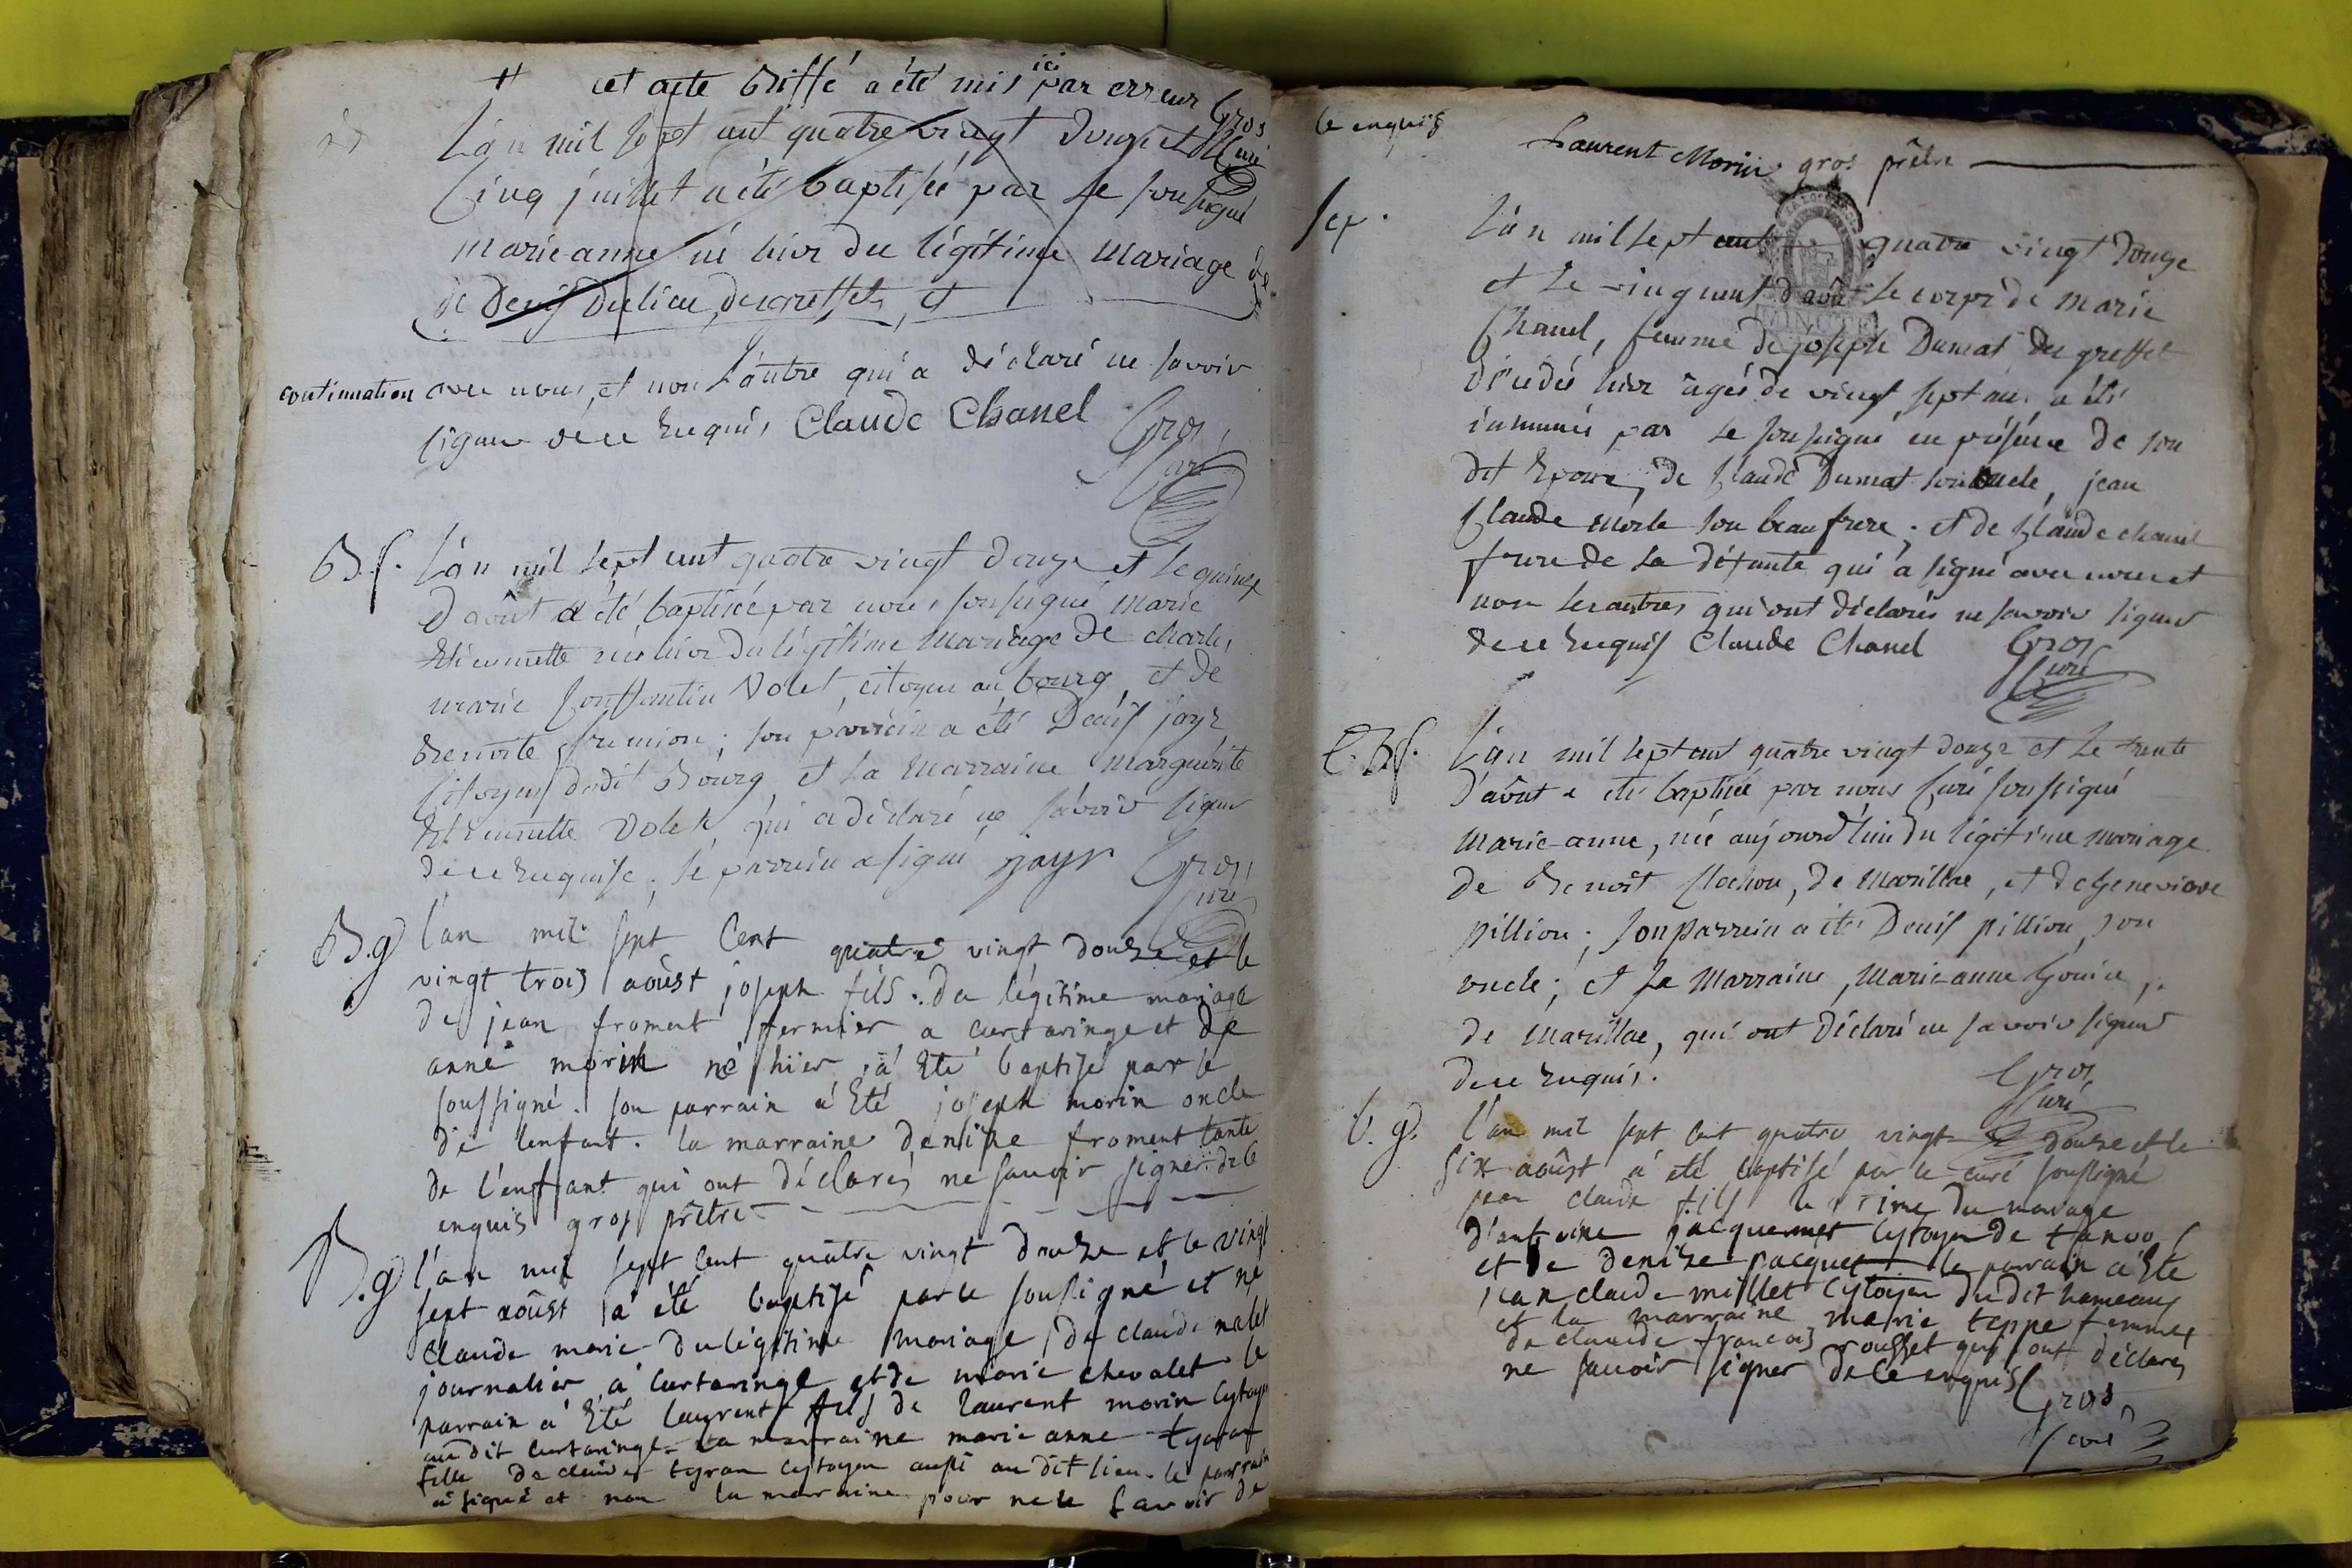 # cet acte Biffé a été mis ici par erreur Gros
L'an mil sept cent quatre vingt douze et le Curé
Cinq juillet a été baptisée par le soussigné
marie-anne né hier du légitime mariage de
de Denis du lieu, des greffets, et
continuation avec nous, et non l'autre qui a déclaré ne savoir
signer de ce Enquis, Claude Chanel Gros,
Curé
B.f. L'an mil sept cent quatre vingt douze et le quinze
d'août a été baptisée par nous soussigné marie
Etiennette née hier du légitime mariage de charles
marie Constantin Volet, citoyen au bourg, et de
Benoite ; son parrein a été Denis jayr
Citoyen dudit Bourg, et la Marraine Marguerite
Etiennette Volet, qui a déclaré ne savoir signer
de ce Enquise ; le parrein a signé jayr Gros,
Curé
B.g l'an mil sept Cent quatre vingt douze et le
vingt trois aoûst joseph fils. du légitime mariage
de jean froment fermier a curtaringe et de
anne morin né hier à Eté baptisé par le
soussigné. son parrain à Eté joseph morin oncle
de lenfant. la marraine denise froment tante
de l'enfant qui ont déclarés ne sauoir signer de ce
enquis gros prêtre
B.g l'an mil sept Cent quatre vingt douze et le vingt
sept aoûst à été baptisé par le soussigné et né
claude marie du légitime mariage de claude nalet
journalier à curtaringe et de marie chevalet le
parrain à Eté laurent fils de laurent morin Cytoyen
au dit curtaringe la marraine marie anne tyran
fille de claude tyran cytoyen aussi au dit lieu. le parrain
à signé et non la marraine pour ne le sauoir de
Ce enquis
Laurent Morin gros prêtre
Sep. L'an mil sept cent quatre vingt douze
et le vingt neuf d'août le corps de marie
Chanel, femme de joseph Dumat des greffets
décédée hier âgée de vingt sept ans a été
inhumée par le soussigné en présence de son
dit Epoux, de Claude Dumat son oncle, jean
Claude morle son beau frere ; et de Claude chanel
frere de la défunte qui a signé avec nous et
non les autres qui ont déclarés ne savoir signer
de ce Enquis Claude Chanel Gros
Curé
B.f. L'an mil sept cent quatre vingt douze et le trente
d'août a été baptisée par nous Curé soussigné
marie-anne, née aujourd'hui du légitime mariage
de Benoît Clochon, de Marillac, et de Genevieve
pillion ; son parrein a été Denis pillion, son
oncle ; et la Marraine, Marie-anne Gouin,
de Marillac, qui ont déclaré ne savoir signer
de ce Enquis. Gros
Curé
b. g. l'an mil sept cent quatre vingt douze et le
six aoûst à eté baptisé par le curé soussigné
jean claude fils du mariage
d'antoine jacquemet Cytoyen de
et de denize pacquet le parrain à Eté
jean claude millet Cytoyen du dit hameau
et la marraine marie teppe femme
de claude francois rousset qui ont déclarés
ne sauoir signer de Ce enquis Gros
Curé